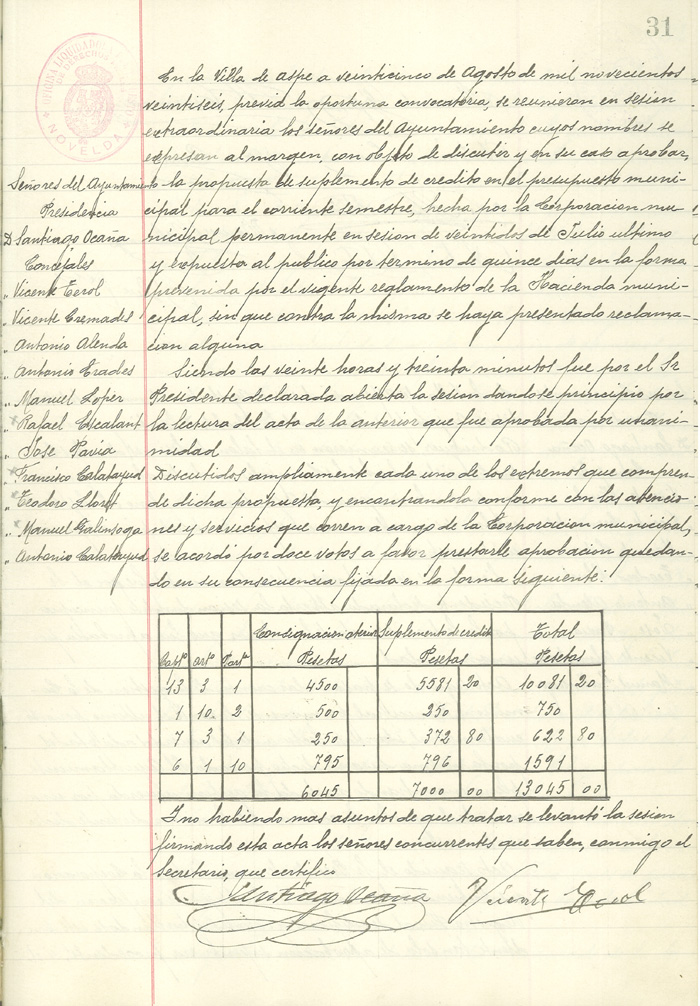 31
OFICINA LIQUIDADORA
NOVELDA
En la Villa de Aspe a veinticinco de Agosto de mil novecientos
veintiseis, previa la oportuna convocatoria, se reunieron en sesion
extraordinaria los señores del Ayuntamiento cuyos nombres se
expresan al margen, con objeto de discutir y en su caso aprobar,
la propuesta de suplemento de credito en el presupuesto muni-
cipal para el corriente semestre, hecha por la Corporacion mu-
nicipal permanente en sesion de veintidos de Julio ultimo
y expuesta al publico por termino de quince dias en la forma
prevenida por el vigente reglamento de la Hacienda muni-
cipal, sin que contra la misma se haya presentado reclama-
cion alguna
Señores del Ayuntamiento
Presidencia
D. Santiago Ocaña
Concejales
" Vicente Cerol
" Vicente Cremades
" Antonio Alenda
" Antonio Erades
" Manuel Loper
" Rafael Escalant
" Jose Pavia
" Francisco Calatayud
" Teodoro Lloret
" Manuel Galinsoga
" Antonio Calatayud
Siendo las veinte horas y treinta minutos fue por el Sr
Presidente declarada abierta la sesion dandose principio por
la lectura del acta de la anterior que fue aprobada por unani-
midad
Discutidos ampliamente cada uno de los extremos que compren-
de dicha propuesta, y encontrandola conforme con las atencio-
nes y servicios que corren a cargo de la Corporacion municipal,
se acordó por doce votos a favor prestarle aprobacion quedan-
do en su consecuencia fijada en la forma siguiente:
Capto arto Parto Consignacion aterior Pesetas Suplemento de credito Pesetas Total Pesetas
13 3 1 4500 5581 20 10081 20
1 10 2 500 250 750
7 3 1 250 372 80 622 80
6 1 10 795 796 1591
6045 7000 00 13045 00
Y no habiendo mas asuntos de que tratar se levantó la sesion
firmando esta acta los señores concurrentes que saben, conmigo el
Secretario, que certifico
Santiago Ocaña Vicente Cerol